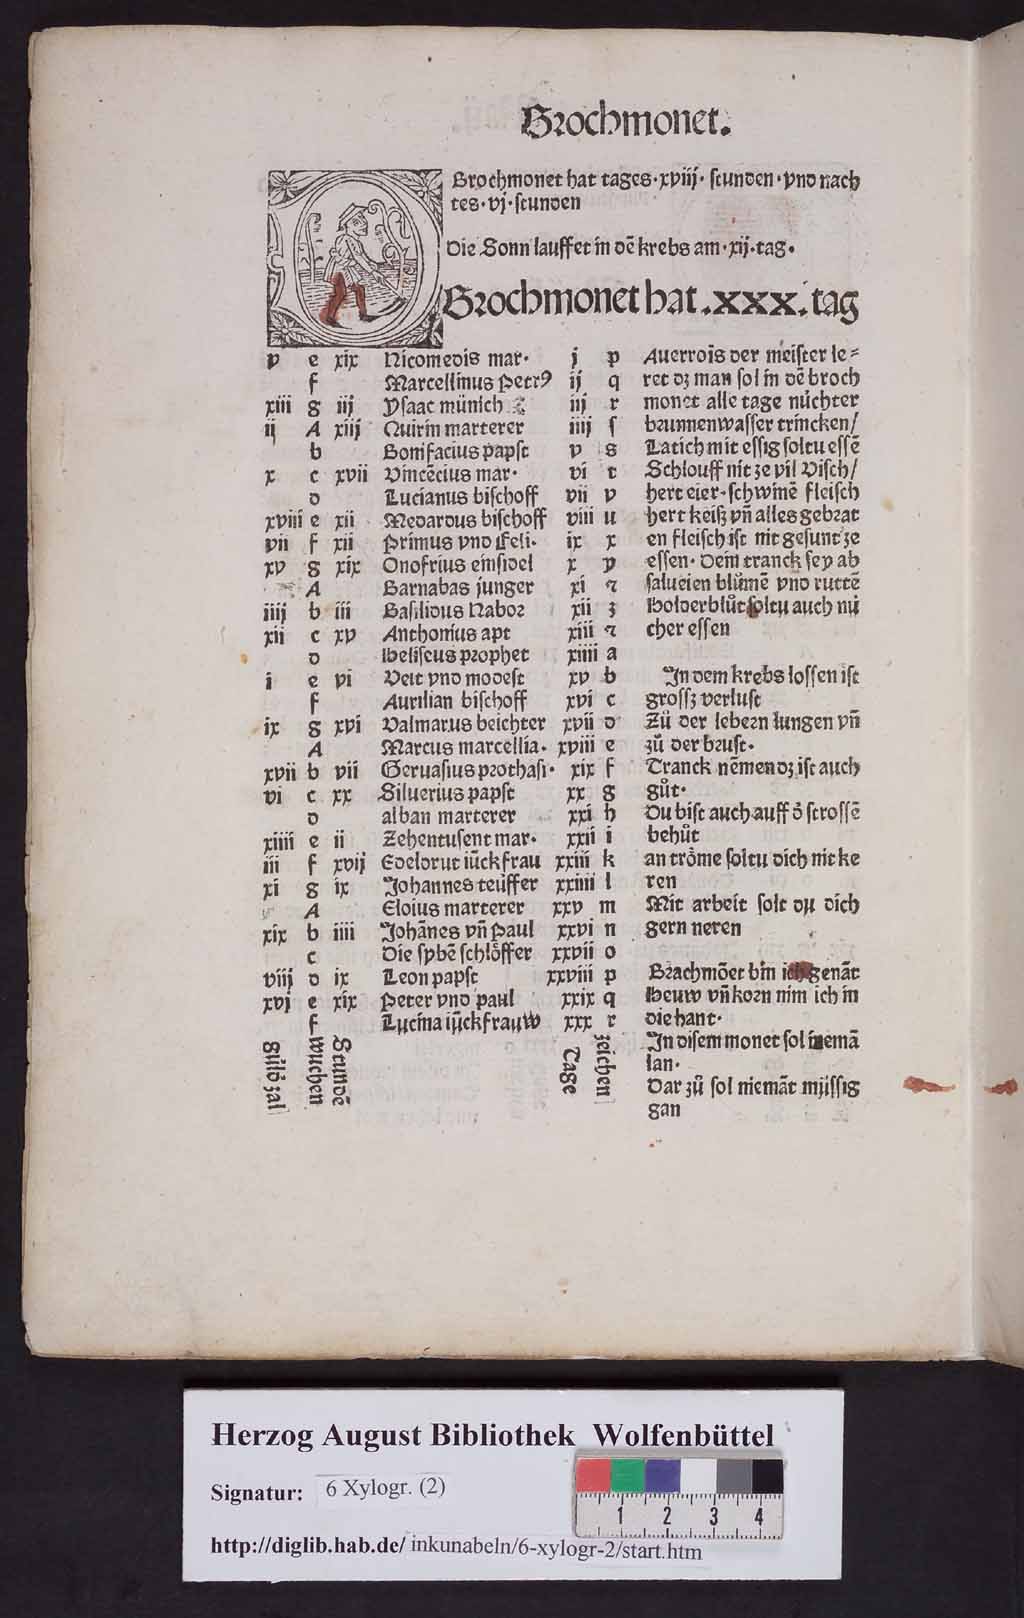 Brochmonet.
Brochmonet hat tages·xviij· stunden·vnd nach
tes·vj·stunden
Die Sonn lauffet in dē krebs am·xij·tag·
Brochmonet hat .xxx. tag
v e xix Nicomedis mar· j p
f Marcellinus Petrꝰ ij q
xiii g iij Ysaac münich iij r
ij A xiij Quirin marterer iiij ſ
b Bonifacius papst v s
x c xvii Vincēcius mar· vi t
d Lucianus bischoff vii v
xviii e xii Medardus bischoff viii u
vii f xii Primus vnd Feli· ix x
xv g xix Onofrius einsidel x y
A Barnabas junger xi ꝛ
iiij b iii Basilidus Nabor xii z
xii c xv Anthonius apt xiii ꝛ
d Heliseus prophet xiiii a
i e vi Veit vnd modest xv b
f Aurilian bischoff xvi c
ix g xvi Valmarus beichter xvii d
A Marcus marcellia· xviii e
xvii b vii Gervasius prothasi· xix f
vi c xx Silverius papst xx g
d alban marterer xxi h
xiiii e ii Zehentusent mar· xxii i
iii f xvij Edeldrut iūckfrau xxiii k
xi g ix Johannes teüffer xxiiii l
A Eloius marterer xxv m
xix b iiii Johānes vñ Paul xxvi n
c Die sybē schlöffer xxvii o
viij d ix Leon papst xxviii p
xvj e xix Peter vnd paul xxix q
f Lucina iūckfrauw xxx r
güld zal
wuchen
Stundē
Tage
zeichen
Averrois der meister le⸗
ret dz man sol in dē broch
monet alle tage nüchter
brunnenwasser trincken/
Latich mit essig soltu essē
Schlouff nit ze vil Visch/
hert eier·schwinē fleisch
hert keiß vñ alles gebrat
en fleisch ist nit gesunt ze
essen· Dein tranck sey ab
salueien blůmē vnd ruttē
Holderblůt soltu auch nü
cher essen
In dem krebs lossen ist
grossz verlust
Zů der lebern lungen vñ
zů der brust·
Tranck nēmen dz ist auch
gůt·
Du bist auch auff ð strossē
behůt
an tröme soltu dich nit ke
ren
Mit arbeit solt du dich
gern neren
Brachmōet bin ich genāt
Heuw vñ korn nim ich in
die hant·
In disem monet sol niemā
lan·
Dar zů sol niemāt müssig
gan
Herzog August Bibliothek Wolfenbüttel
Signatur: 6 Xylogr. (2)
1 2 3 4
http://diglib.hab.de/ inkunabeln/6-xylogr-2/start.htm